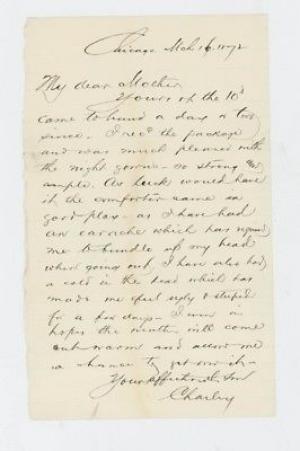 Chicago Mch 16, 1872
My dear Mother
Yours of the 10th
came to hand a day or two
since. I recd the package
and was much pleased with
the night gowns - so strong and
ample. As luck would have
it the comforter came in
good play - as I have had
an earache which has required
me to bundle up my head
when going out, I have also had
a cold in the head which has
made me feel ugly & stupid
for a few days - I am in
hopes the month will come
out warm and allow me
a chance to get over it -
Your affectionate Son
Charley